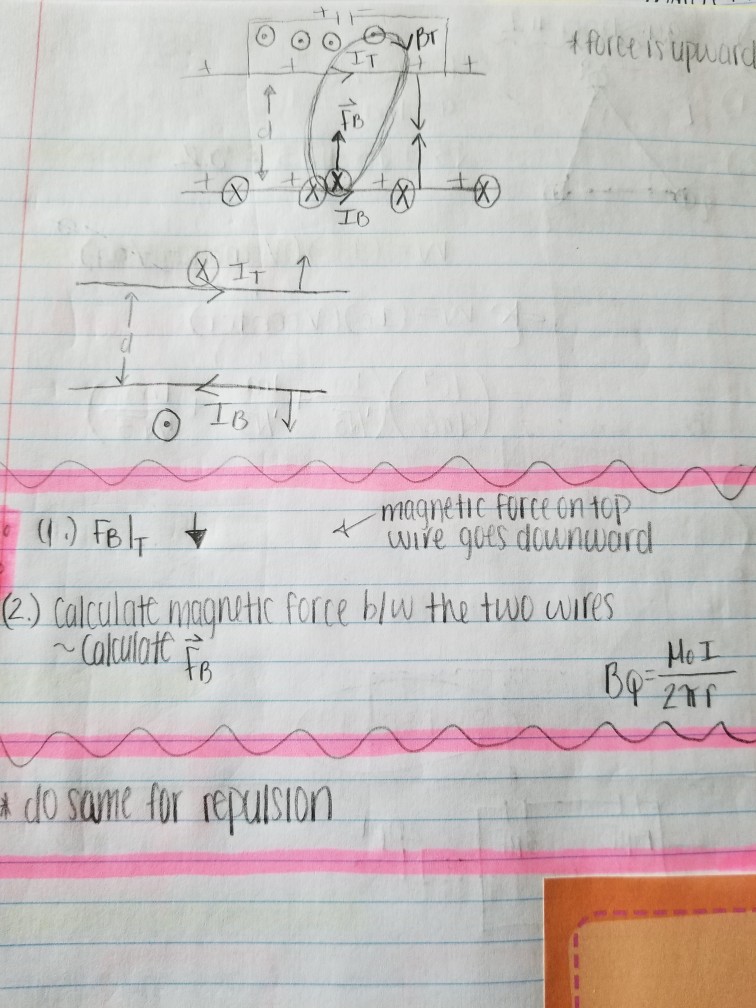 + | |
⊙ ⊙ ⊙ ⊙ BT
* force is upward
+ + IT + +
d FB
+ ⓧ + ⓧ ⓧ + ⓧ + ⓧ
IB
ⓧ IT
d
⊙ IB
(1.) FB|T ↓ magnetic force on top
wire goes downward
(2.) Calculate magnetic force b/w the two wires
~ Calculate FB
Bφ = μ0 I / 2πr
* do same for repulsion